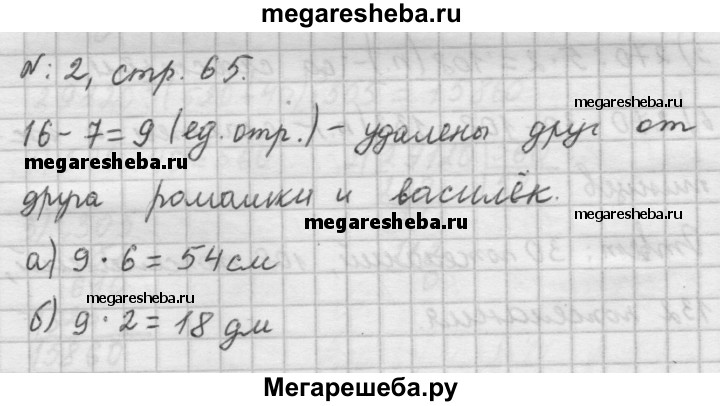 megaresheba.ru
№: 2, стр. 65.
megaresheba.ru
16 - 7 = 9 (ед. отр.) - удалены друг от
megaresheba.ru
друга ромашки и василёк.
megaresheba.ru
megaresheba.ru
а) 9 · 6 = 54 см
megaresheba.ru
б) 9 · 2 = 18 дм
megaresheba.ru
Мегарешеба.ру